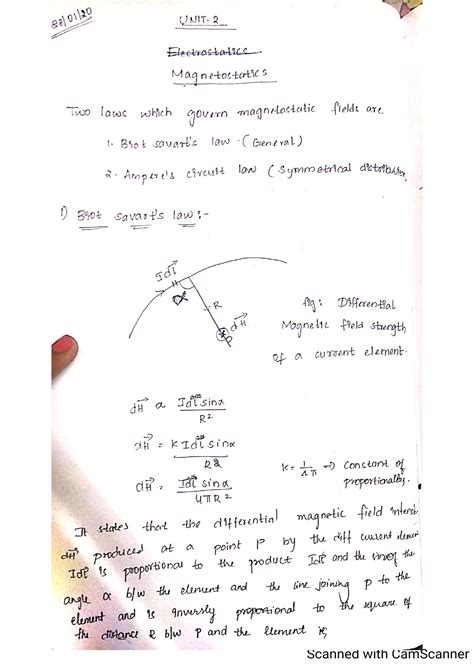 23/01/20
UNIT-2
Electrostatics
Magnetostatics
Two laws which govern magnetostatic fields are
1. Biot savart's law. (General)
2. Ampere's circuit law (Symmetrical distribution
1) Biot savart's law :-
Idl
α
R
dH
P
fig: Differential
Magnetic field strength
of a current element.
dH α Idl sinα / R²
dH = K Idl sinα / R²
dH = Idl sinα / 4πR²
K = 1/4π ⇒ Constant of
proportionality.
It states that the differential magnetic field
dH produced at a point P by the diff current element
Idl is proportional to the product Idl and the sine of the
angle α b/w the element and the line joining P to the
element and is inversly proportional to the square of
the distance R b/w P and the Element is,
Scanned with CamScanner